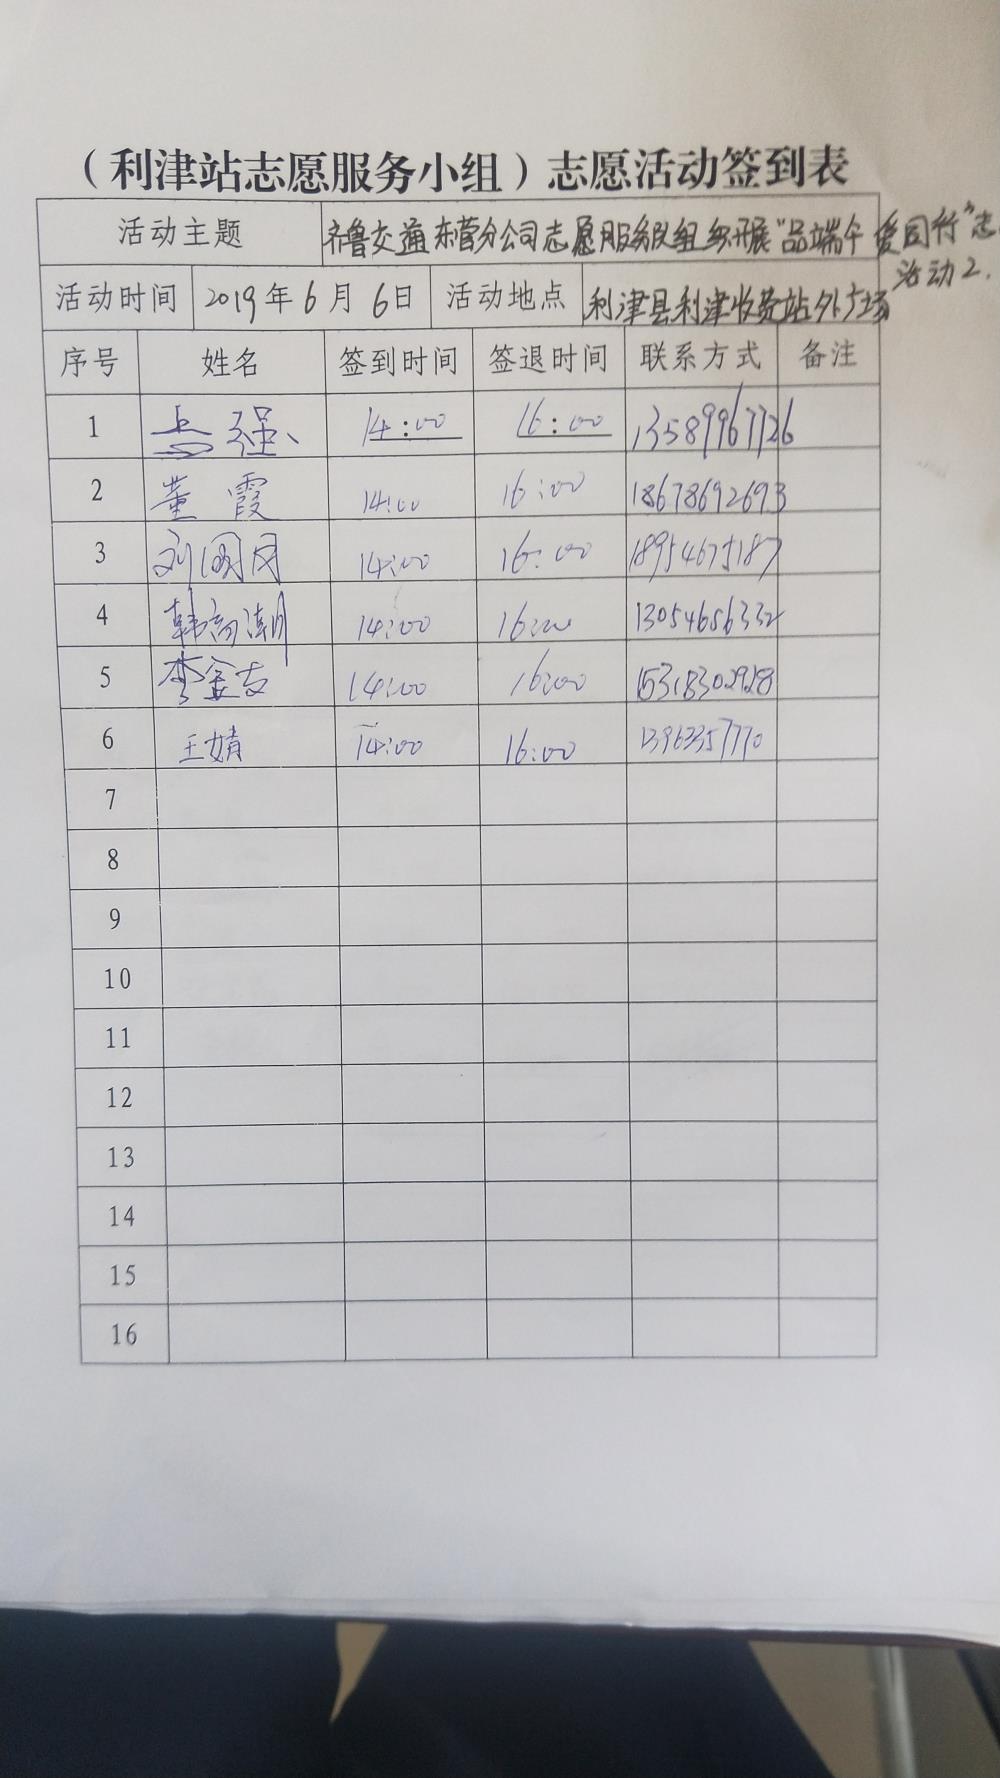 （利津站志愿服务小组）志愿活动签到表
活动主题 齐鲁交通东营分公司志愿服务队组织开展“品端午 爱同行”志
活动2.
活动时间 2019年6月6日 活动地点 利津县利津收费站外广场
序号 姓名 签到时间 签退时间 联系方式 备注
1 强 14:00 16:00 13589967726
2 董霞 14:00 16:00 18678692693
3 刘国 14:00 16:00 18954675187
4 韩高潮 14:00 16:00 13054656332
5 李金友 14:00 16:00 15318302928
6 王婧 14:00 16:00 13963357770
7
8
9
10
11
12
13
14
15
16